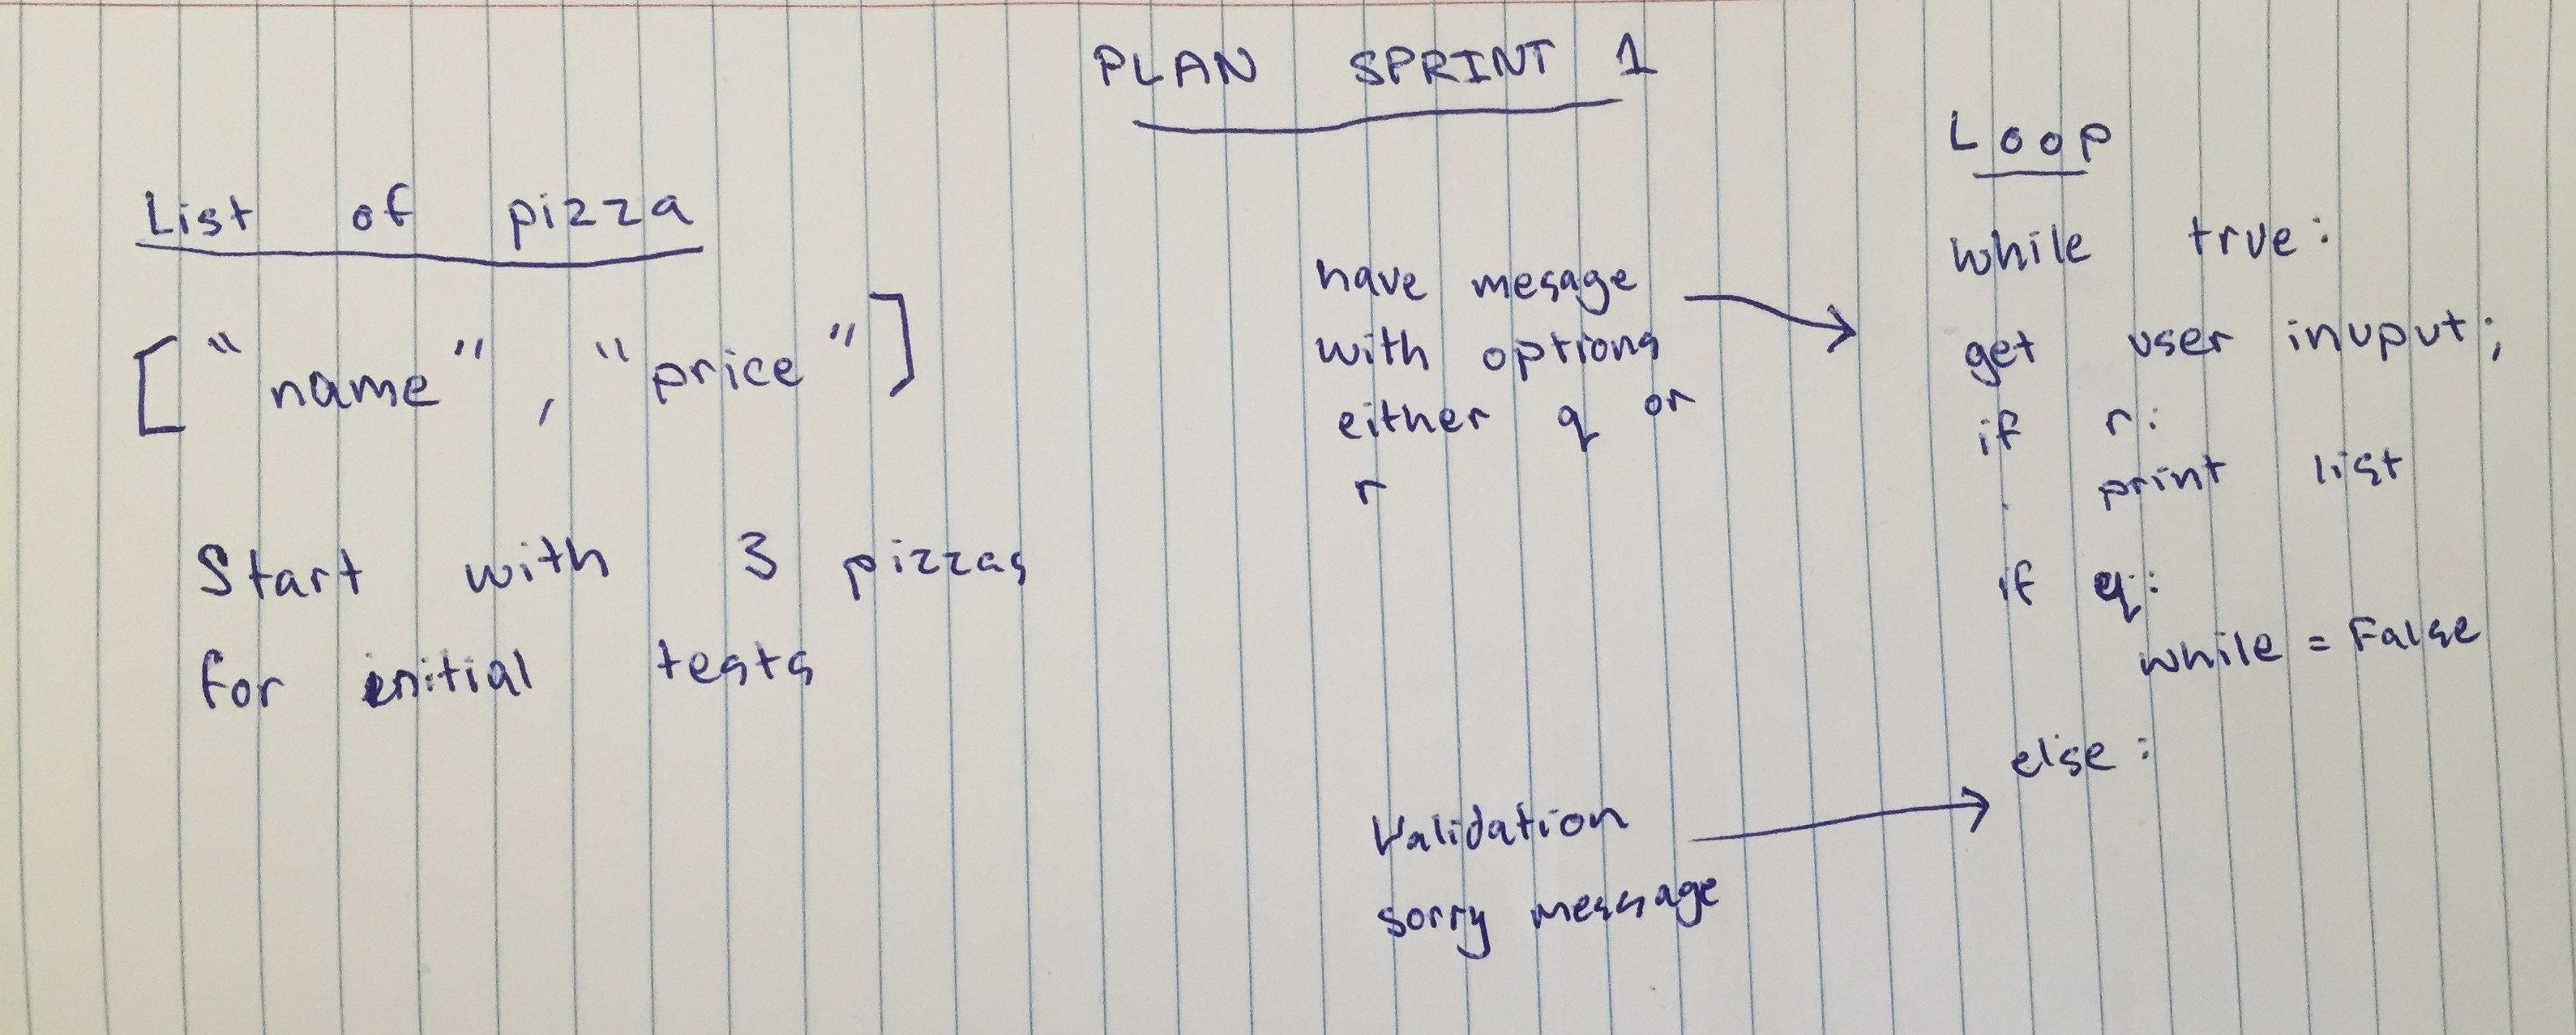 PLAN SPRINT 1
List of pizza
["name", "price"]
Start with 3 pizzas
for initial tests
have mesage
with options
either q or
r
Validation
sorry message
Loop
while true:
get user inuput;
if r:
print list
if q:
while = False
else: